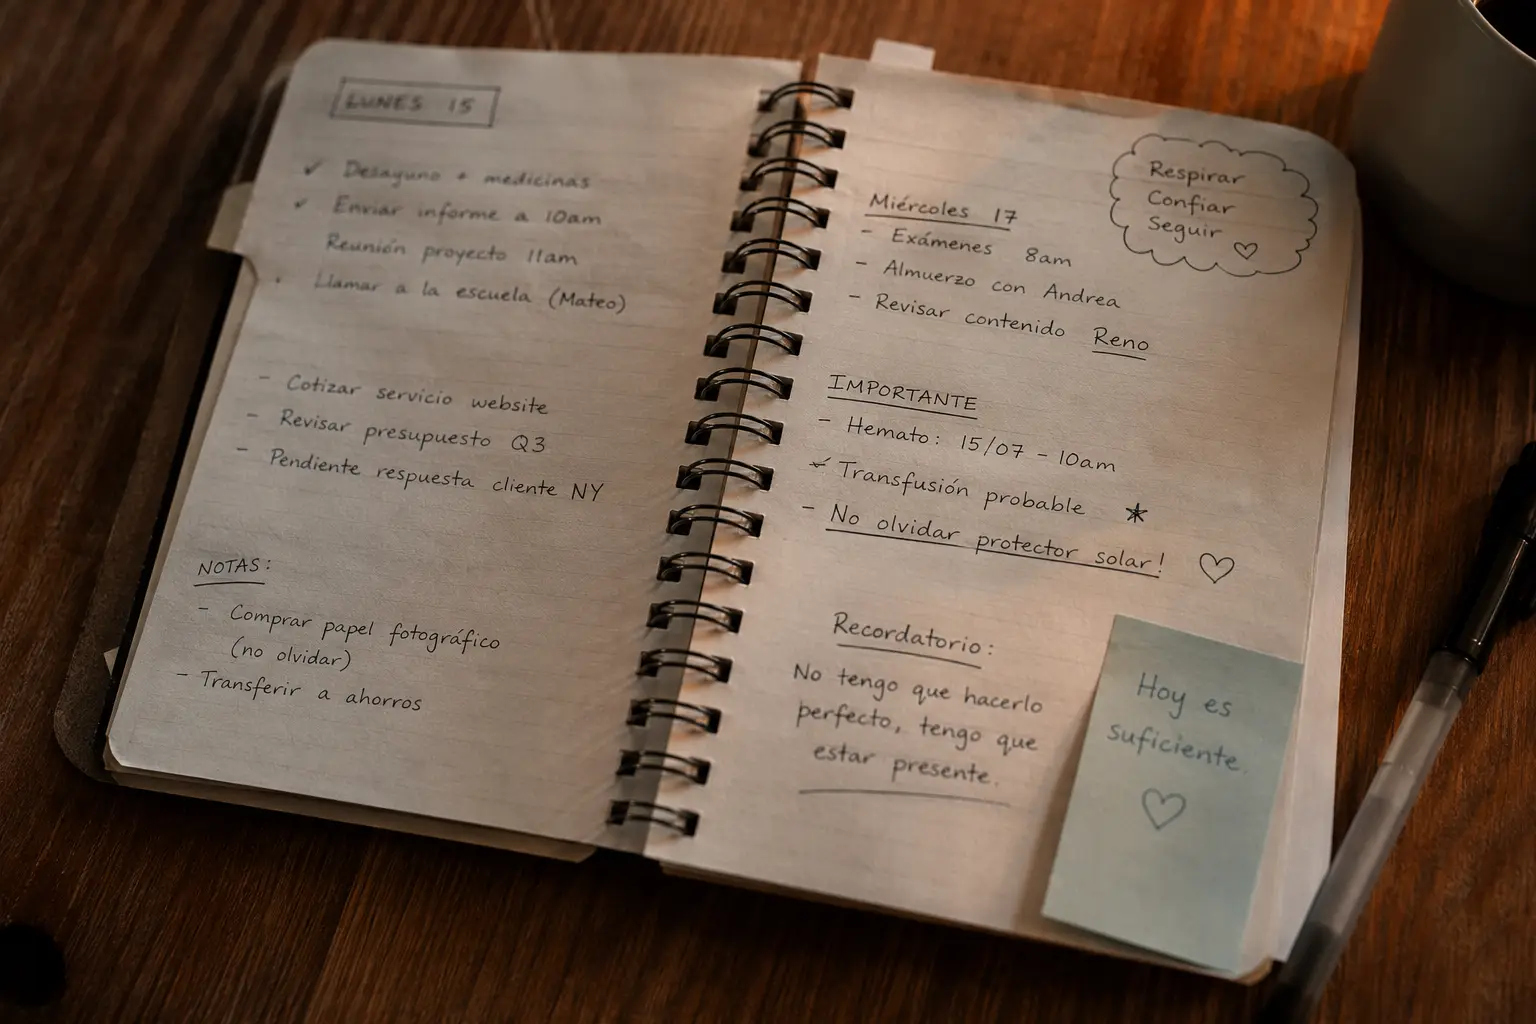 LUNES 15
✓ Desayuno + medicinas
✓ Enviar informe a 10am
Reunión proyecto 11am
Llamar a la escuela (Mateo)
- Cotizar servicio website
- Revisar presupuesto Q3
- Pendiente respuesta cliente NY
NOTAS:
- Comprar papel fotográfico
(no olvidar)
- Transferir a ahorros
Respirar
Confiar
Seguir ♡
Miércoles 17
- Exámenes 8am
- Almuerzo con Andrea
- Revisar contenido Reno
IMPORTANTE
- Hemato: 15/07 - 10am
✓ Transfusión probable *
- No olvidar protector solar! ♡
Recordatorio:
No tengo que hacerlo
perfecto, tengo que
estar presente.
Hoy es
suficiente.
♡